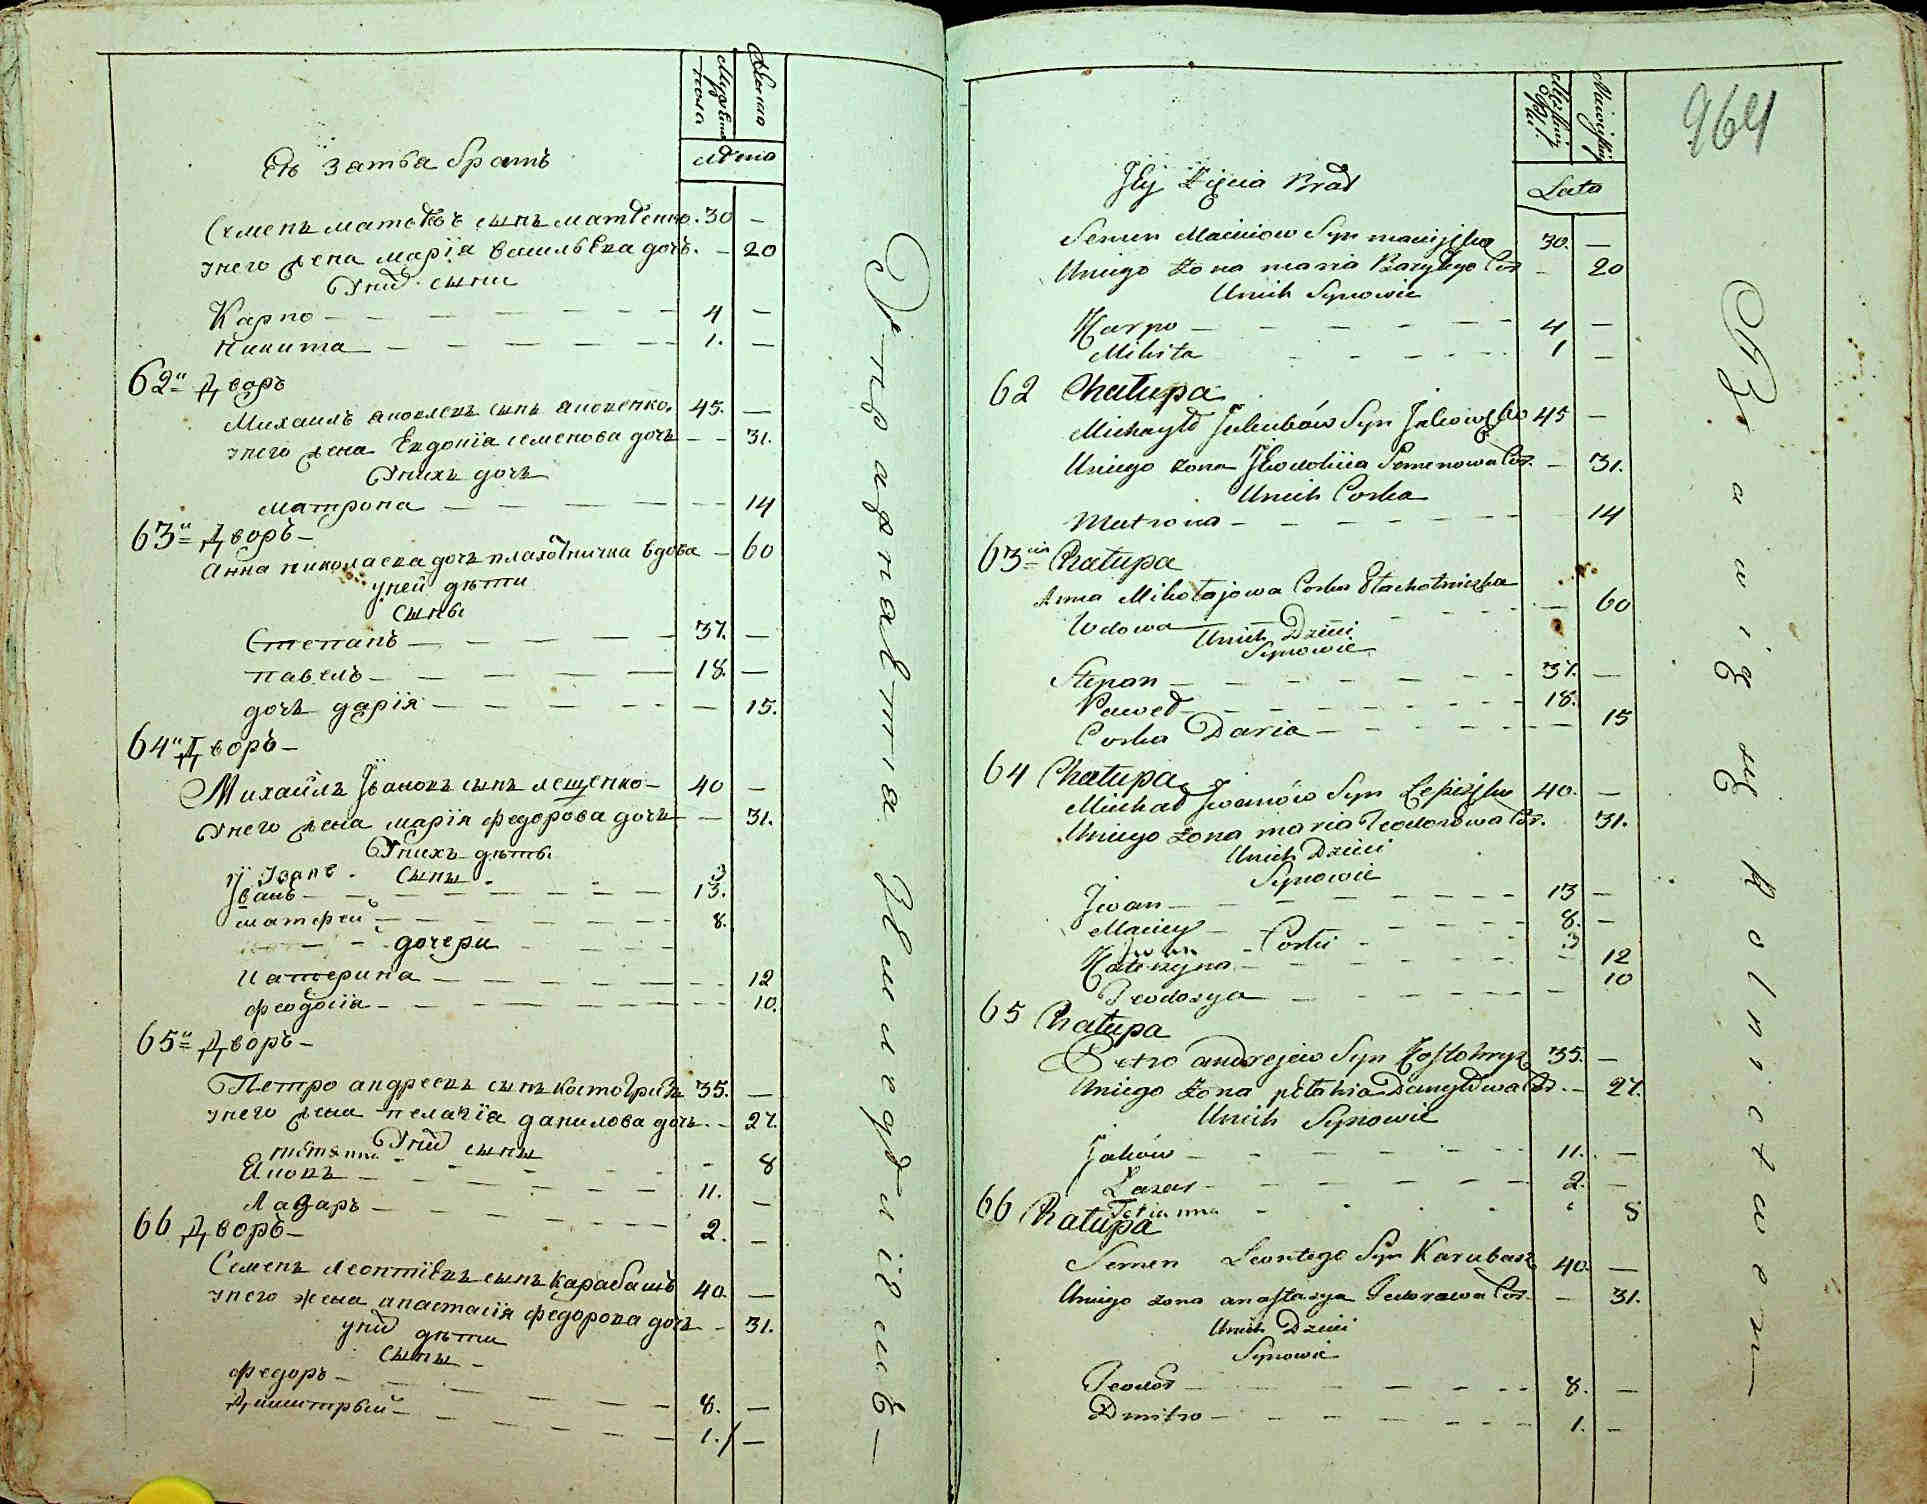 Мужеска
пола
Женска
лѣта
Ея Затьа братъ
Семенъ матвѣевъ сынъ матвеенко. 30 —
Унего жена маріа васильева дочь. — 20
Унихъ сыны
Карпо — 4 —
Никита — 1. —
62й Дворъ
Михаилъ яковлевъ сынъ яковенко. 45. —
унего жена Евдокіа семенова дочь — 31.
Унихъ дочь
матрона — 14
63й Дворъ —
Анна николаева дочь плахотничка вдова — 60
уней дѣти
сыны
Степанъ — 37. —
павелъ — 18. —
дочь даріа — 15.
64й Дворъ —
Михайлъ Івановъ сынъ лещенко — 40 —
Унего жена маріа федорова дочь — 31.
Унихъ дѣти.
Іванъ. сыны. 3
Іванъ — 13.
матфей — 8.
дочери
Катерина — 12
феодосіа — 10.
65й Дворъ —
Петро андреевъ сынъ костогризъ 35. —
унего жена пелагіа данилова дочь. — 27.
Унихъ сыны
татяна — 8
Яковъ — 11. —
Лазаръ — 2. —
66 Дворъ —
Семенъ леонтіевъ сынъ карабашъ 40. —
унего жена анастасіа федорова дочь — 31.
унихъ дѣти
сыны —
федоръ — 8. —
Димитрьей — 1. —
964
Lata
Jey Zięcia Brat
Semen Maciiow Syn maciejko 30. —
Uniego Zona maria Bazylego Cor. — 20
Unich Synowie
Karpo — 4 —
Mikita — 1 —
62 Chałupa
Michayło Jakubów Syn Jakowęko 45 —
Uniego zona Jewdokiia Semenowa Cor. — 31.
Unich Corka
Matrona — 14
63cia Chałupa
Anna Mikołajowa Corka Płachotniczka
Wdowa — 60
Unich Dzieci
Synowie
Stepan — 37. —
Paweł — 18.
Corka Daria — 15
64 Chałupa
Michał Jwanów Syn Leszczęko 40. —
Uniego zona maria Teodorowa Cor. 31.
Unich Dzieci
Synowie
Jwan — 13 —
Maciey — 8. —
Jwan — Corki — 3
Katerzyna — 12
Teodosya — 10
65 Chałupa
Petro andrejew Syn Kostohryz 35. —
Uniego zona pelahia Danyłowa Cor. — 27.
Unich Synowie
Jaków — 11. —
Łazar — 2. —
Tetianna — 8
66 Chałupa
Semen Leontego Syn Karabasz 40. —
Uniego zona anastasya Fedorowa Cor. — 31.
Unich Dzieci
Synowie
Teodor — 8. —
Dmitro — 1. —